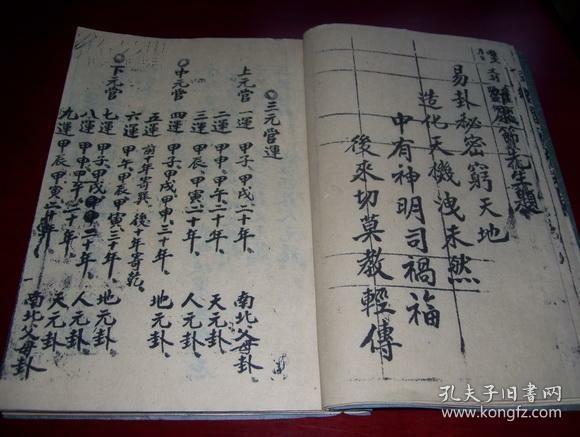 邵康節先生
易卦秘密窮天地
造化天機洩未然
中有神明司禍福
後來切莫教輕傳
◎三元當運
上元當 一運 甲子、甲戌二十年、 南北父母卦、
二運 甲申、甲午、二十年、 天元卦、
三運 甲辰、甲寅、二十年、 人元卦、
◎中元當 四運 甲子、甲戌、甲申、三十年、 地元卦、
五運 前十年寄巽、後十年寄乾、
六運 甲午、甲辰、甲寅、三十年、 地元卦、
◎下元當 七運 甲子、甲戌、二十年、 人元卦、
八運 甲申、甲午、二十年、 天元卦、
九運 甲辰、甲寅、二十年、 南北父母卦
孔夫子旧书网
www.kongfz.com